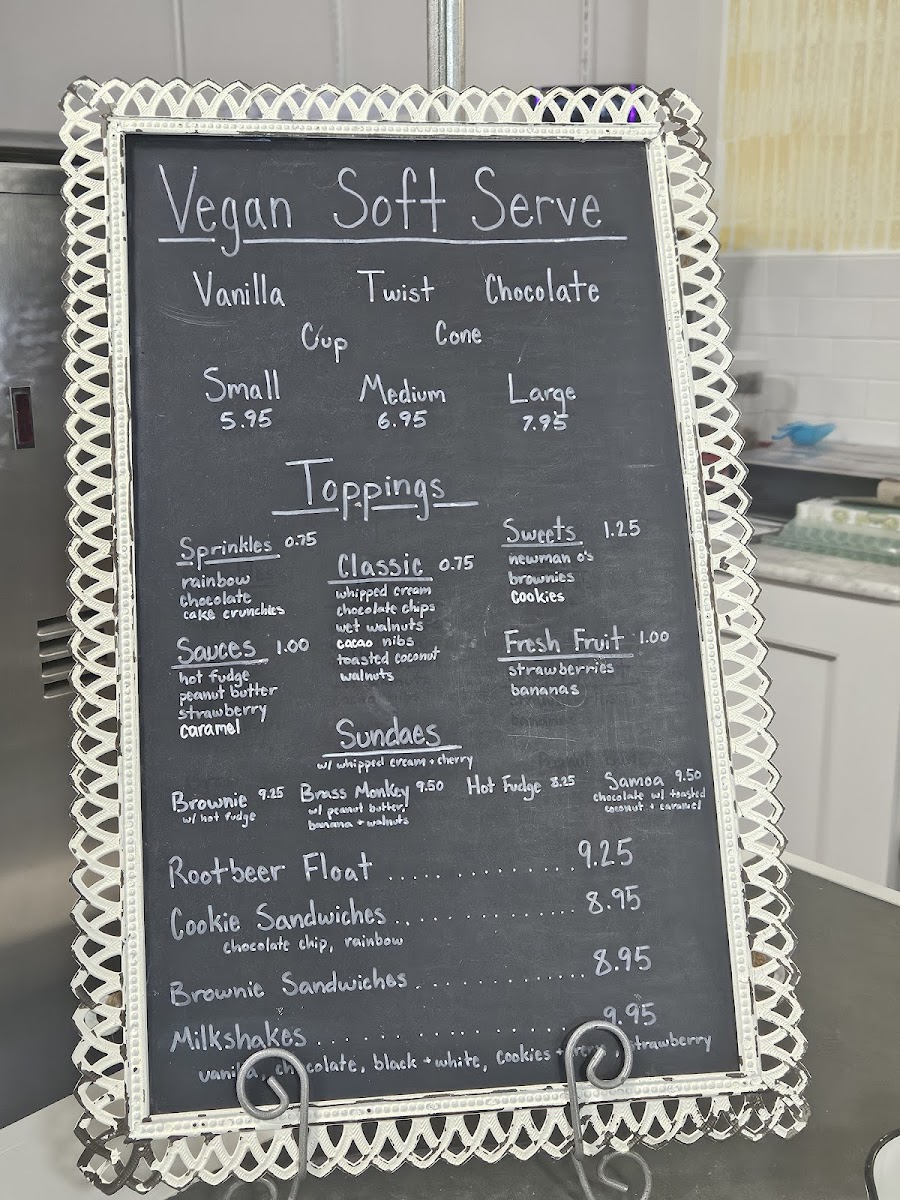 Vegan Soft Serve
Vanilla Twist Chocolate
Cup Cone
Small Medium Large
5.95 6.95 7.95
Toppings
Sprinkles 0.75
rainbow
chocolate
cake crunchies
Classic 0.75
whipped cream
chocolate chips
wet walnuts
cacao nibs
toasted coconut
walnuts
Sweets 1.25
newman o's
brownies
cookies
Sauces 1.00
hot fudge
peanut butter
strawberry
caramel
Fresh Fruit 1.00
strawberries
bananas
Sundaes
w/ whipped cream + cherry
Brownie 9.25
w/ hot fudge
Brass Monkey 9.50
w/ peanut butter,
banana + walnuts
Hot Fudge 8.25
Samoa 9.50
chocolate w/ toasted
coconut + caramel
Rootbeer Float .............. 9.25
Cookie Sandwiches .............. 8.95
chocolate chip, rainbow
Brownie Sandwiches .............. 8.95
Milkshakes .............. 9.95
vanilla, chocolate, black + white, cookies + , strawberry